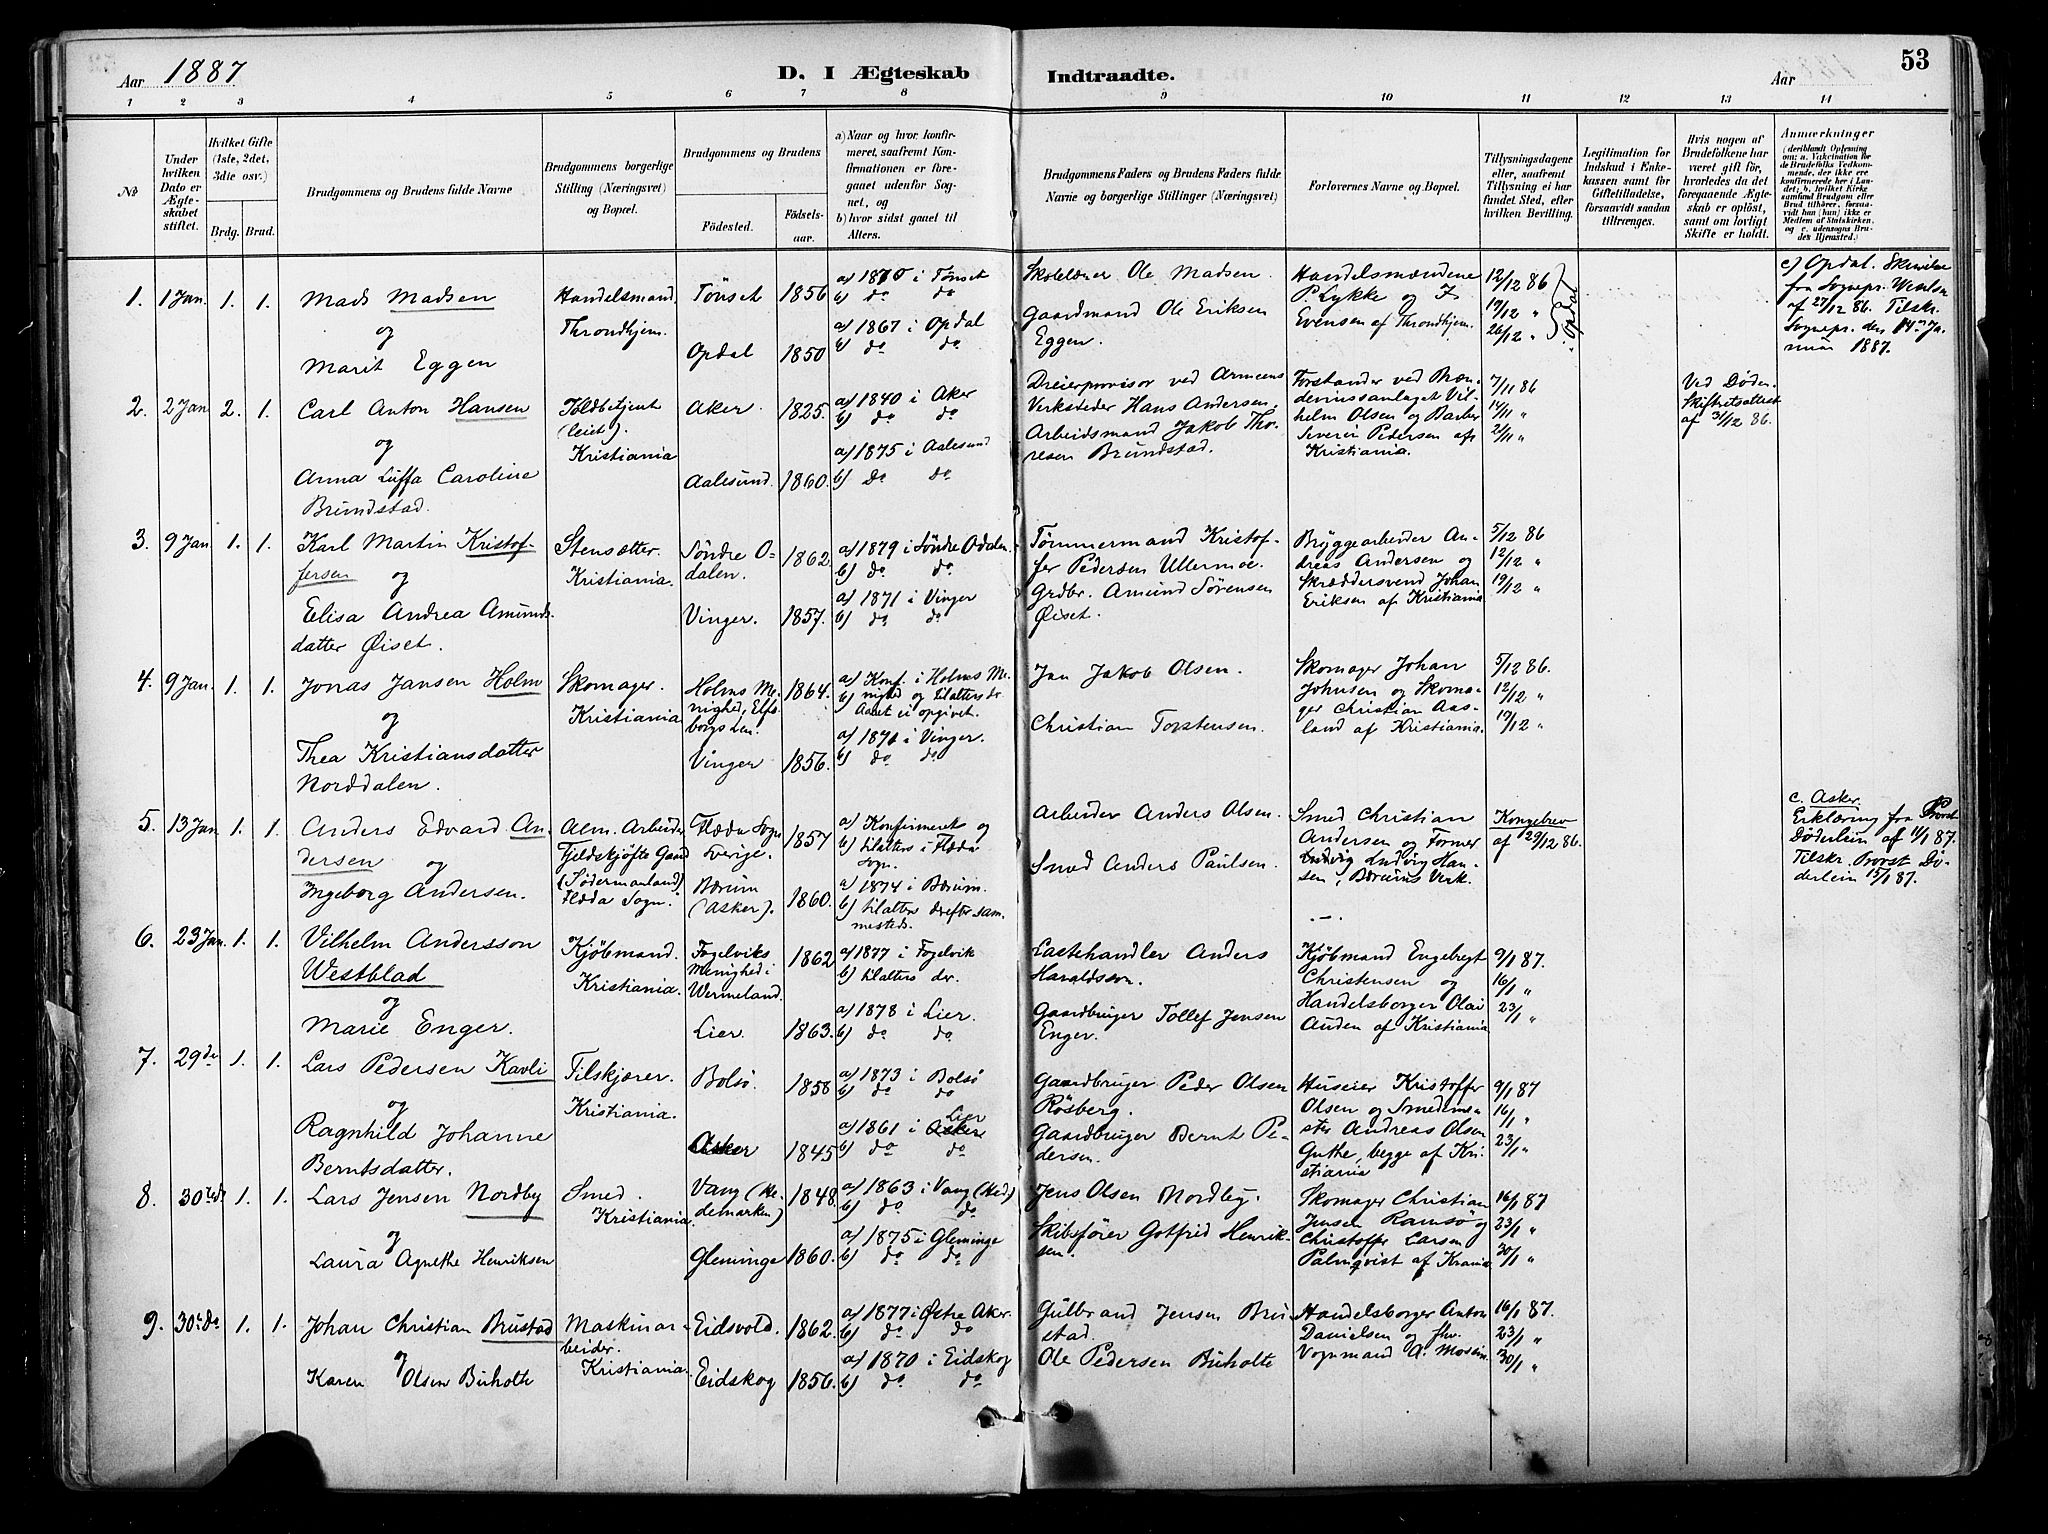 53
Aar 1887
D. I Ægteskab Indtraadte.
Aar
1 2 3 4 5 6 7 8 9 10 11 12 13 14
No
Under hvilken Dato er Ægteskabet stiftet.
Hvilket Gifte (1ste, 2det, 3die osv.)
Brdg. Brud.
Brudgommens og Brudens fulde Navne
Brudgommens borgerlige Stilling (Næringsvei) og Bopæl.
Brudgommens og Brudens
Fødested. Fødselsaar.
a) Naar og hvor konfirmeret, saafremt Konfirmationen er foregaaet udenfor Sognet, og
b) hvor sidst gaaet til Alters.
Brudgommens Faders og Brudens Faders fulde Navne og borgerlige Stillinger (Næringsvei)
Forlovernes Navne og Bopæl.
Tillysningsdagene eller, saafremt Tillysning ei har fundet Sted, efter hvilken Bevilling.
Legitimation for Indskud i Enkekassen samt for Giftetilladelse, forsaavidt saadan tiltrænges.
Hvis nogen af Brudefolkene har været gift før, hvorledes da det foregaaende Ægteskab er opløst, samt om lovligt Skifte er holdt.
Anmærkninger (deriblandt Oplysning om: a. Vakcination for de Brudefolks Vedkommende, der ikke ere konfirmerede her i Landet; b. hvilket Kirkesamfund Brudgom eller Brud tilhører, forsaavidt han (hun) ikke er Medlem af Statskirken, og c. udensogns Brudes Hjemsted.)
1. 1 Jan. 1. 1.
Mads Madsen
og
Marit Eggen
Handelsmand.
Throndhjem.
Tönset 1856
Opdal 1850
a) 1870 i Tönset
b) do do
a) 1867 i Opdal
b) do do
Skolelærer Ole Madsen.
Gaardmand Ole Eriksen
Eggen.
Handelsmændene
P. Lykke og J.
Evensen af Throndhjem.
12/12 86
19/12 "
26/12 "
Opdal
c) Opdal. Skrivelse
fra Sognepr.
af 27/12 86. Tilskr.
Sognepr. den 14de Ja-
nuar 1887.
2. 2 Jan 2. 1.
Carl Anton Hansen
og
Anna Luffa Caroline
Brundstad.
Toldbetjent
(leiet).
Kristiania
Aker. 1825.
Aalesund. 1860.
a) 1840 i Aker
b) do do
a) 1875 i Aalesund
b) Do do
Dreierprovisor ved Armeens
Verksteder Hans Andersen.
Arbeidsmand Jakob Tho-
resen Brundstad.
Forstander ved Bræn-
devinsanlaget Vil-
helm Olsen og Barber
Severin Pedersen af
Kristiania.
7/11 86
14/11 "
21/11 "
Ved Døden.
Skifteretsattest
af 31/12 86.
3. 9 Jan. 1. 1.
Karl Martin Kristof-
fersen og
Elisa Andrea Amunds-
datter Øiset.
Stensætter.
Kristiania.
Söndre O-
dalen. 1862
Vinger. 1857.
a) 1879 i Söndre Odalen.
b) do do
a) 1871 i Vinger
b) do do
Tømmermand Kristof-
fer Pedersen Ullermoe.
Grdbr. Amund Sörensen
Øiset.
Bryggearbeider An-
dreas Andersen og
Skræddersvend Johan
Eriksen af Kristiania
5/12 86
12/12 "
19/12 "
4. 9 Jan. 1. 1.
Jonas Jansen Holm
og
Thea Kristiansdatter
Norddalen.
Skomager.
Kristiania
Holms Me-
nighed, Elfs-
borgs Len. 1864.
Vinger 1856.
a) Konf. i Holms Me-
b) nighed og tilalters do.
Aaret ei opgivet.
a) 1871 i Vinger.
b) do do
Jan Jakob Olsen.
Christian Torstensen.
Skomager Johan
Johnsen og Skoma-
ger Christian Aas-
land af Kristiania.
5/12 86.
12/12 "
19/12 "
5. 13 Jan. 1. 1.
Anders Edvard An-
dersen og
Ingeborg Andersen.
Alm. Arbeider
Fjeldskjöfte Gaard
(Södermanland)
Flæda Sogn.
Flæda Sogn
Sverige. 1857
Bærum
(Asker). 1860.
a) Konfirmeret og
b) tilalters i Flæda
Sogn.
a) 1874 i Bærum.
b) tilalters derefter sam-
mesteds.
Arbeider Anders Olsen.
Smed Anders Paulsen.
Smed Christian
Andersen og Former
Ludvig Ludvig Han-
sen, Bærums Verk.
Kongebrev
af 29/12 86.
c. Asker.
Erklæring fra Provst
Döderlein af 11/1 87.
Tilskr. Provst Dö-
derlein 15/1 87.
6. 23 Jan. 1. 1.
Vilhelm Andersson
Westblad
og
Marie Enger.
Kjöbmand.
Kristiania.
Fogelviks
Menighed i
Wermeland. 1862
Lier. 1863.
a) 1877 i Fogelvik
b) tilalters do.
a) 1878 i Lier.
b) do do
Lastehandler Anders
Haraldsson.
Gaardbruger Tollef Jensen
Enger.
Kjöbmand Engebregt
Christensen og
Handelsborger Olai
Auden af Kristiania
9/1 87.
16/1 "
23/1 "
7. 29 do 1. 1.
Lars Pedersen Kavli
og
Ragnhild Johanne
Berntsdatter.
Tilskjærer.
Kristiania.
Bolsö. 1858
Asker 1845
a) 1873 i Bolsö
b) do do
a) 1861 i Asker Lier
b) do do
Gaardbruger Peder Olsen
Rösberg.
Gaardbruger Bernt Pe-
dersen.
Huseier Kristoffer
Olsen og Smedemes-
ter Andreas Olsen
Guthe, begge af Kri-
stiania
9/1 87
16/1 "
23/1 "
8. 30te do 1. 1.
Lars Jensen Nordby
og
Laura Agnethe Henriksen
Smed.
Kristiania.
Vang (He-
demarken) 1848.
Gleminge 1860.
a) 1863 i Vang (Hed)
b) do do
a) 1875 i Gleminge
b) do do
Jens Olsen Nordby.
Skibsförer Gotfred Henrik-
sen.
Skomager Christian
Jensen Ramsö og
Christoffer Larsen
Palmqvist af Krania
16/1 87
23/1 "
30/1 "
9. 30te do 1. 1.
Johan Christian Brustad
og
Karen Olsen Buholte
Maskinar-
beider.
Kristiania.
Eidsvold. 1862.
Eidskog 1856.
a) 1877 i Østre Aker.
b) do do
a) 1870 i Eidskog
b) do do
Gulbrand Jensen Bru-
stad.
Ole Pedersen Buholte
Handelsborger Anton
Danielsen og fhv.
Vognmand A.
16/1 87.
23/1 "
30/1 "